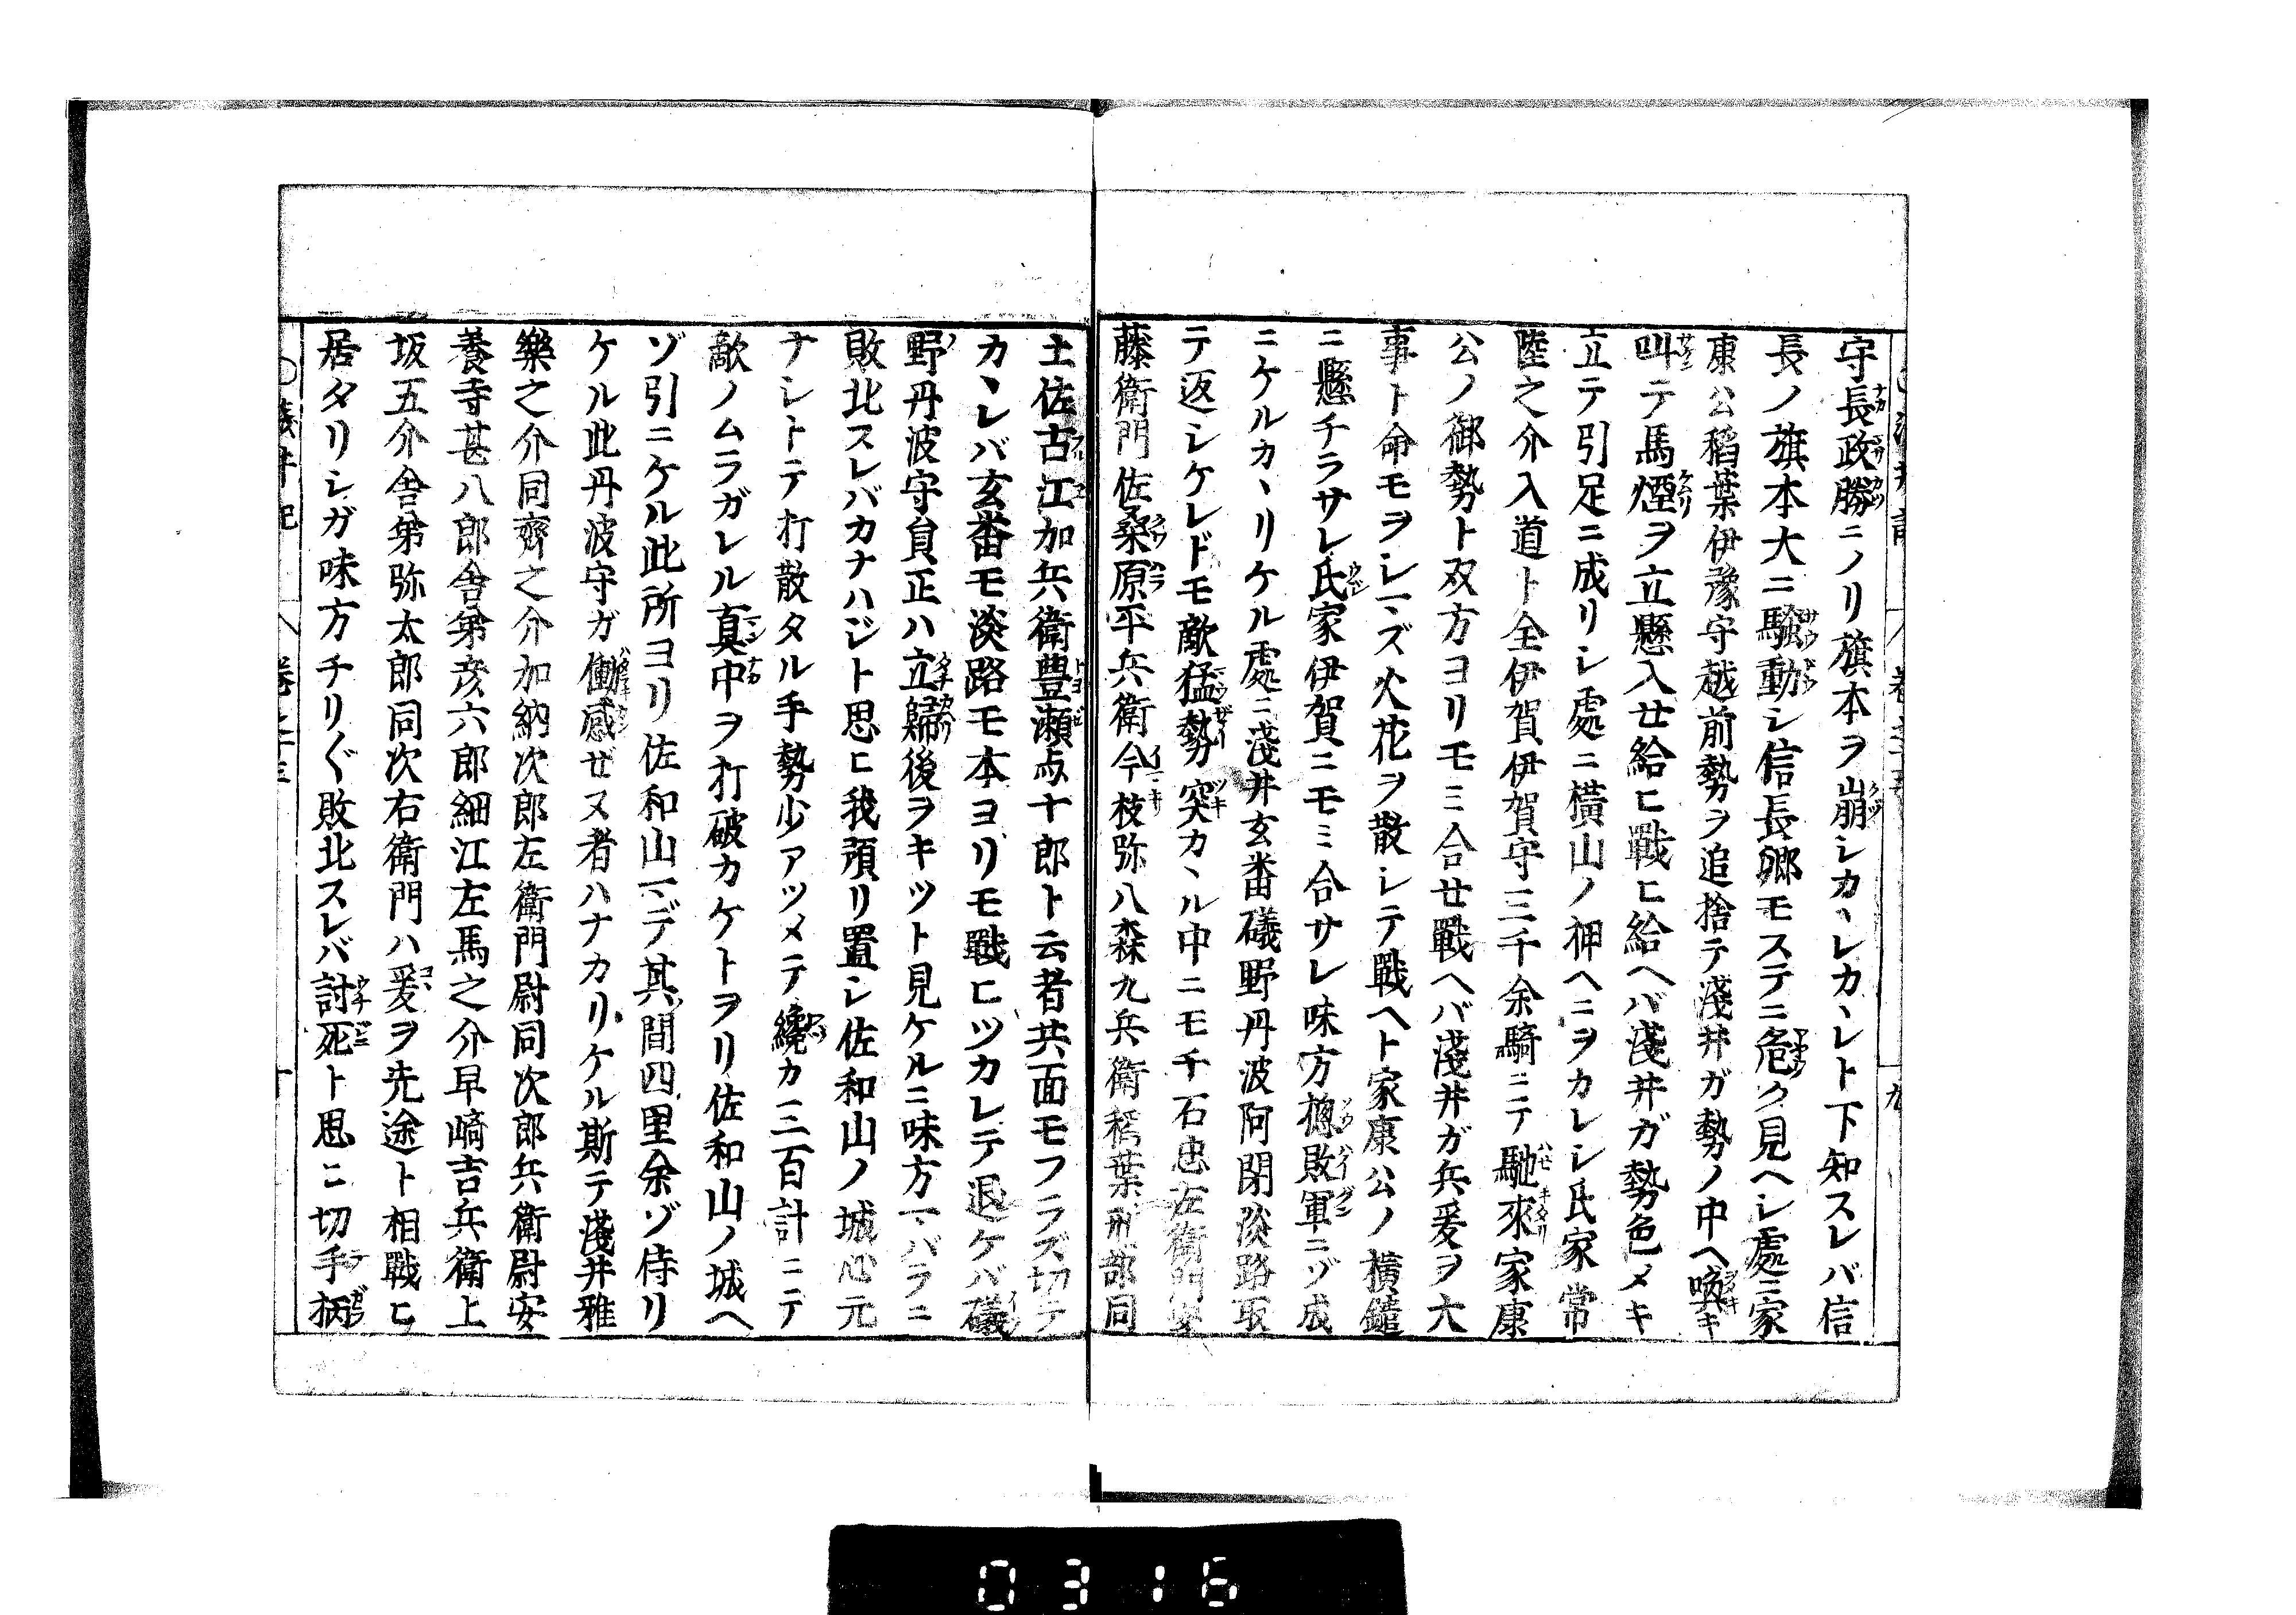 守長政勝ニノリ旗本ヲ崩シカヽレカヽレト下知スレバ信
長ノ旗本大ニ騒動シ信長郷モステニ危ク見ヘシ處ニ家
康公稻葉伊豫守越前勢ヲ追捨テ淺井ガ勢ノ中ヘ喚キ
叫テ馬煙ヲ立懸入せ給ヒ戰ヒ給ヘバ淺井ガ勢色メキ
立テ引足ニ成リシ處ニ横山ノ押ヘニヲカレシ氏家常
陸之介入道ト全伊賀伊賀守三千余騎ニテ馳來家康
公ノ御勢ト双方ヨリモミ合せ戰ヘバ淺井ガ兵爰ヲ大
事ト命モヲシマズ火花ヲ散シテ戰ヘト家康公ノ横鑓
ニ懸チラサレ氏家伊賀ニモミ合サレ味方摠敗軍ニゾ成
ニケルカヽリケル處ニ淺井玄蕃礒野丹波阿閉淡路取
テ返シケレドモ敵猛勢突カヽル中ニモ千石忠左衛門
藤衛門佐桑原平兵衛今枝弥八森九兵衛稻葉刑部同
土佐古江加兵衛豊瀬与十郎ト云者共面モフラズ切テ
カヽレバ玄蕃モ淡路モ本ヨリモ戰ヒツカレテ退ケバ礒
野丹波守員正ハ立歸後ヲキツト見ケルニ味方マバラニ
敗北スレバカナハジト思ヒ我預リ置シ佐和山ノ城心元
ナシトテ打散タル手勢少アツメテ纔カ三百計ニテ
敵ノムラガレル真中ヲ打破カケトヲリ佐和山ノ城ヘ
ゾ引ニケル此所ヨリ佐和山マデ其間四里余ゾ侍リ
ケル此丹波守ガ働感ぜヌ者ハナカリケル斯テ淺井雅
樂之介同齊之介加納次郎左衛門尉同次郎兵衛尉安
養寺甚八郎舎弟彦六郎細江左馬之介早崎吉兵衛上
坂五介舎弟弥太郎同次右衛門ハ爰ヲ先途ト相戰ヒ
居タリシガ味方チリ〲敗北スレバ討死ト思ニ切手柄